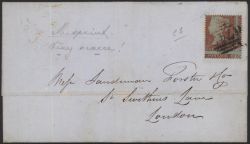 Misprint
Very scarce!
Messrs Sandeman Forster & Co
St Swithins Lane
London